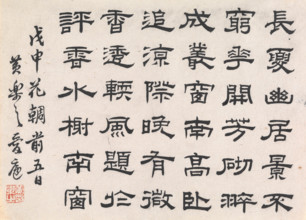 長夏幽居景不
窮華開芳砌翠
成叢窗南高臥
追涼際晚有微
香透輭風題於
評香水榭南窗
戊申花朝前五日
黃樂之